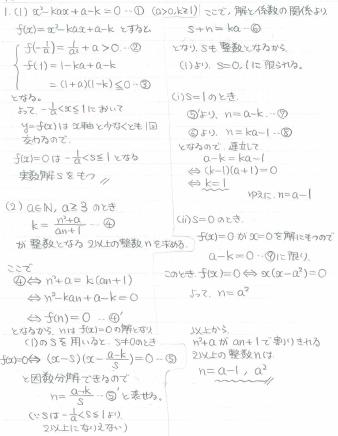 1.(1) x²-kax+a-k=0 …① (a>0, k≧1)
f(x)=x²-kax+a-k とすると
f(-1/a)=1/a²+a>0 …②
f(1)=1-ka+a-k
=(1+a)(1-k)≦0 …③
となる。
よって、-1/a<x≦1 において
y=f(x)はx軸と少なくとも1回
交わるので、
f(x)=0 は -1/a<s≦1 となる
実数解 s をもつ //
(2) a∈N, a≧3 のとき
k=(n²+a)/(an+1) …④
が整数となる2以上の整数nを求める。
ここで
④⇔n²+a=k(an+1)
⇔n²-kan+a-k=0
⇔f(n)=0 …④'
となるから、nはf(x)=0の解となり
(1)のsを用いると、s≠0のとき
f(x)=0⇔(x-s)(x-(a-k)/s)=0 …⑤
と因数分解できるので
n=(a-k)/s …⑤' と表せる。
(∵sは-1/a<s≦1より
2以上になりえない)
ここで、解と係数の関係より
s+n=ka …⑥
となり、sも整数となるから
(1)より、s=0,1に限られる。
(i)s=1のとき、
⑤'より、n=a-k …⑦
⑥より、n=ka-1 …⑧
となるので、連立して
a-k=ka-1
⇔(k-1)(a+1)=0
⇔k=1
ゆえに、n=a-1
(ii)s=0のとき、
f(x)=0がx=0を解にもつので
a-k=0 …⑨に限り、
このとき、f(x)=0⇔x(x-a²)=0
よって、n=a²
以上から、
n²+aがan+1で割りきれる
2以上の整数nは、
n=a-1, a²